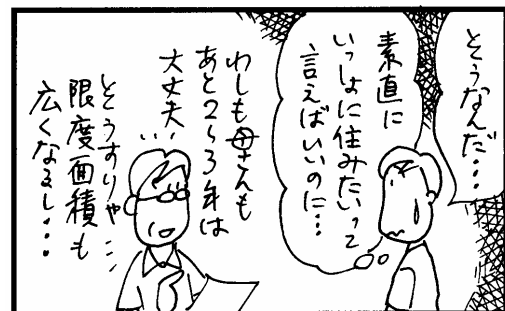 そうなんだ・・・
素直に
いっしょに住みたいって
言えばいいのに・・・
わしも母さんも
あと2〜3年は
大丈夫・・・
そうすりゃ・・・
限度面積も
広くなるし・・・